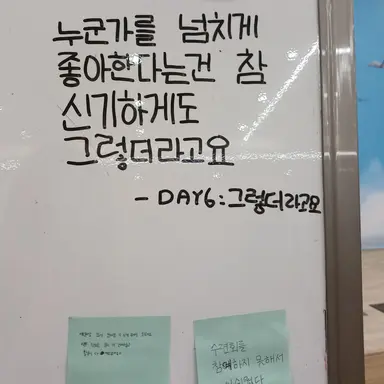 누군가를 넘치게
좋아한다는건 참
신기하게도
그렇더라고요
- DAY6:그렇더라고요
수련회를
참여하지 못해서